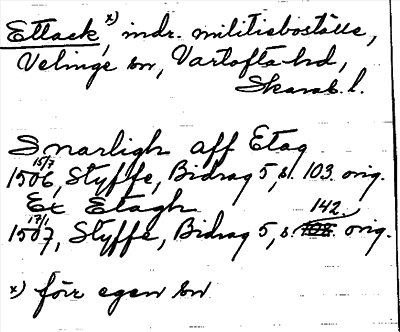 Ettack, x) indr. militieboställe,
Velinge sn, Vartofta hd,
Skarab. l.
Snarligh aff Etag
15/7
1506, Styffe, Bidrag 5, s. 103. orig.
Ex Etagh
17/1 142.
1507, Styffe, Bidrag 5, s. 108. orig.
x) förr egen sn